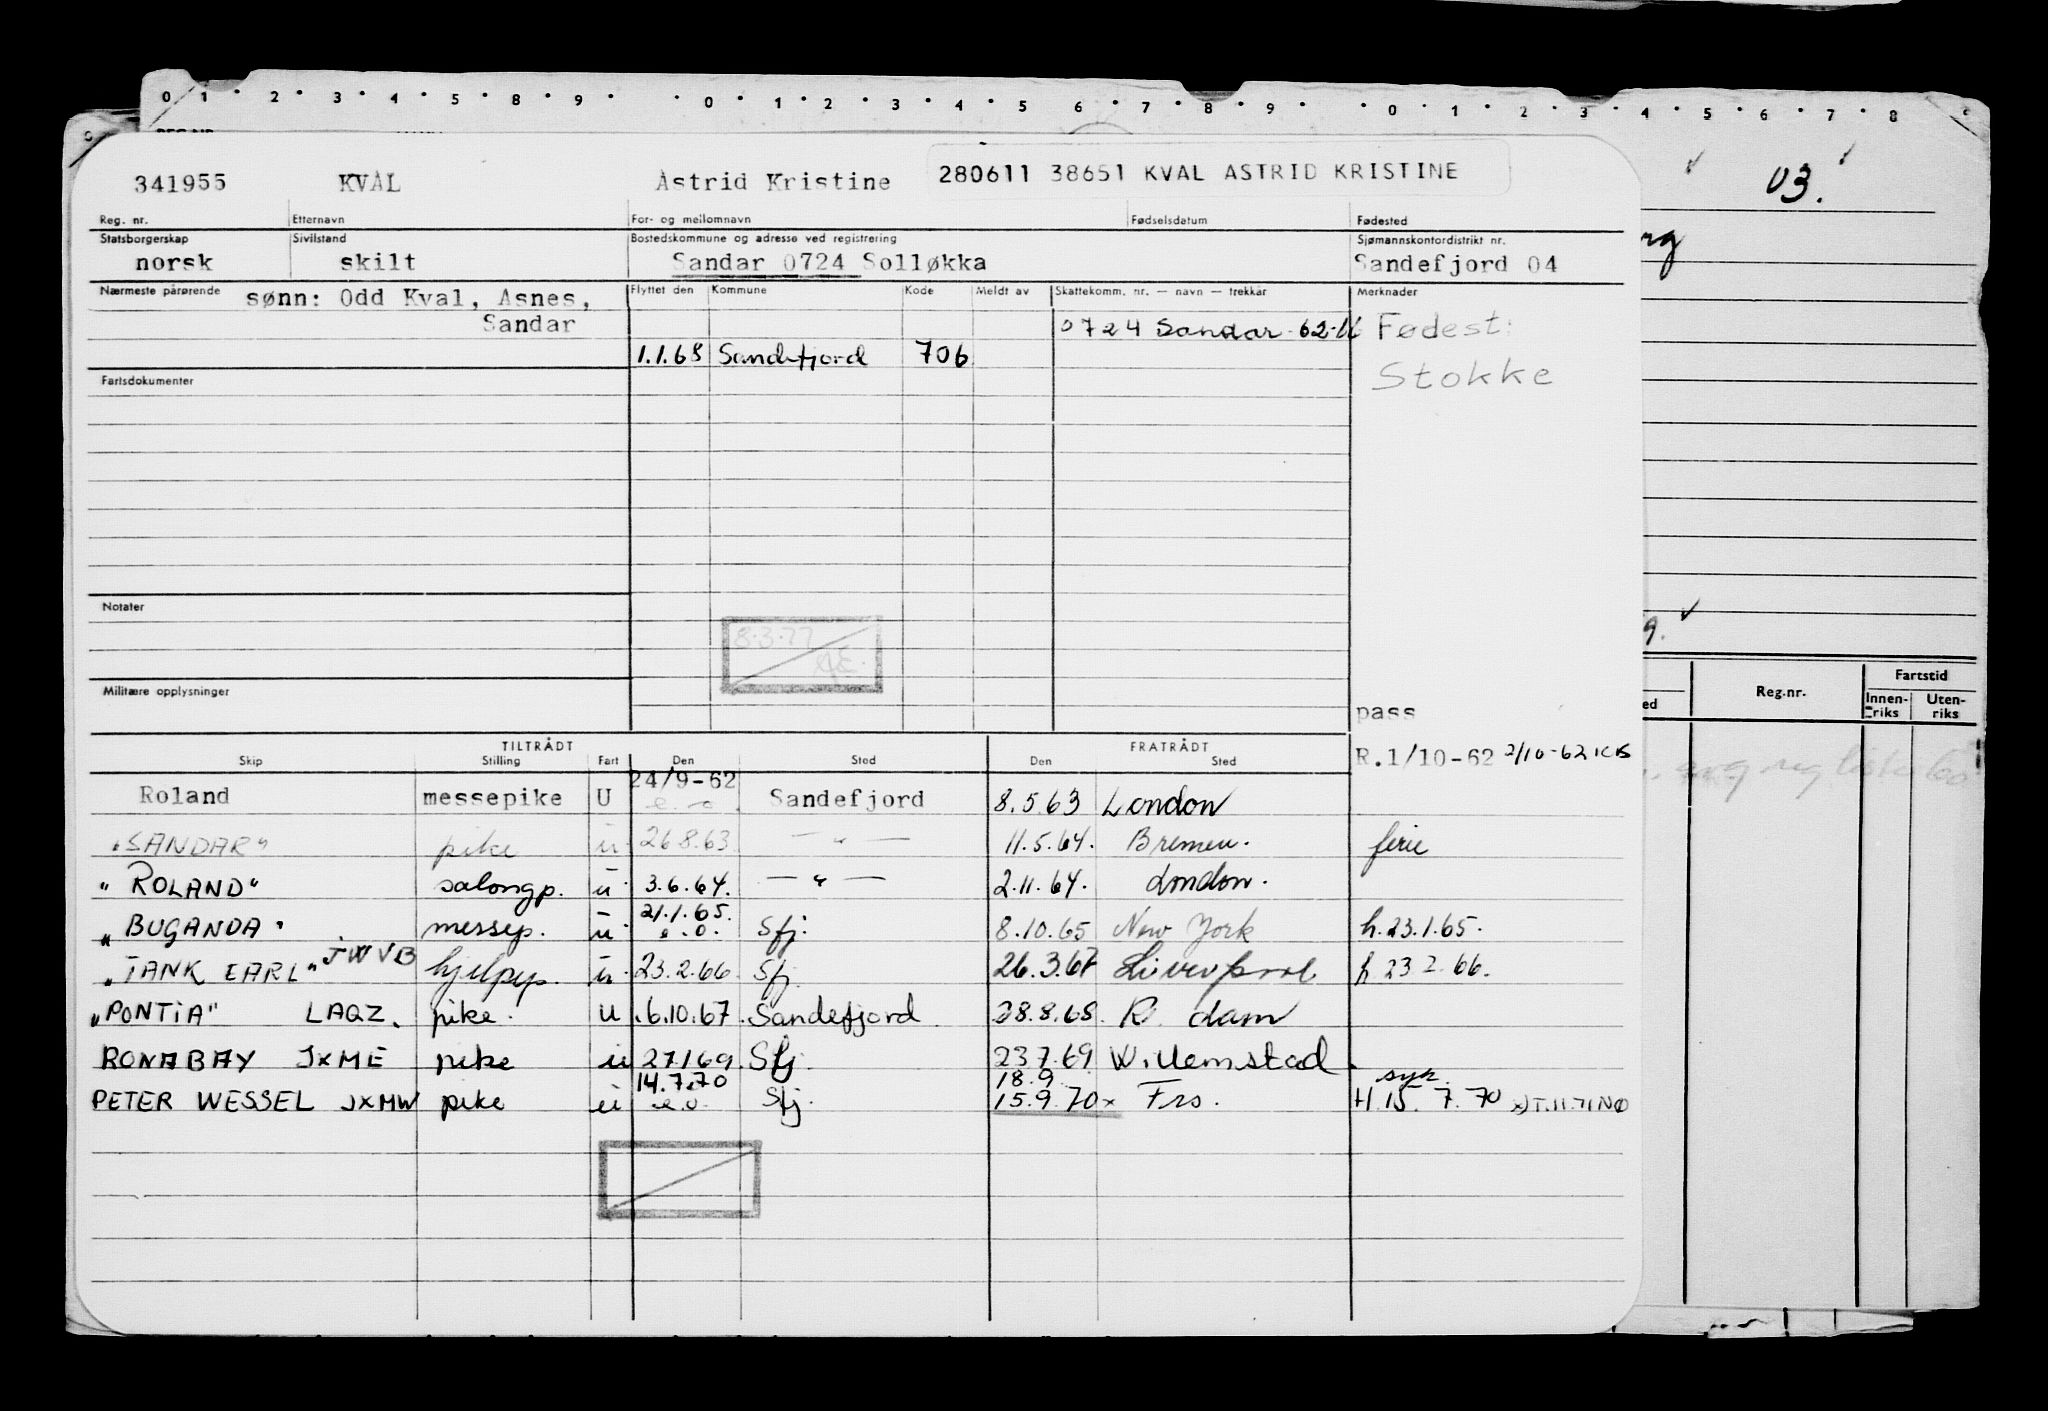 0 1 2 3 4 5 8 9 0 1 2 3 4 5 6 7 8 9 0 1 2 3 4 5 6 7 8
03.
341955 KVAL Astrid Kristine 280611 38651 KVAL ASTRID KRISTINE
Reg. nr. Etternavn For- og mellomnavn Fødselsdatum Fødested
Statsborgerskap Sivilstand Bostedskommune og adresse ved registrering Sjømannskontordistrikt nr.
norsk skilt Sandar 0724 Solløkka Sandefjord 04
Nærmeste pårørende sønn: Odd Kval, Asnes, Flyttet den Kommune Kode Meldt av Skattekomm. nr. — navn — trekkår Merknader
Sandar 0724 Sandar Fødest:
1.1.68 Sandefjord 706
Stokke
Fartsdokumenter
Notater
8.3.77
Militære opplysninger
Reg.nr. Fartstid
Innen-riks Uten-riks
pass
TILTRÅDT FRATRÅDT
Skip Stilling Fart Den Sted Den Sted R.1/10-62 2/10-62
24/9-62
Roland messepike U e.o. Sandefjord 8.5.63 London
"SANDAR" pike u 26.8.63 — " — 11.5.64. Bremen. ferie
"ROLAND" salongp. u 3.6.64. — " — 2.11.64. London.
21.1.65.
"BUGANDA" messep. u e.o. Sfj. 8.10.65 New York h.23.1.65.
"TANK EARL" JWVB hjelpep. u 23.2.66. Sfj. 26.3.67 Liverpool h 23 2.66.
"PONTIA" LAQZ. pike. u .6.10.67. Sandefjord 28.8.68. R. dam
RONABAY JXME pike u 27.1.69. Sfj. 23.7.69 Willemstad.
14.7.70 18.9 syk.
PETER WESSEL JXMW pike u e.o. Sfj. 15.9.70x Frs. H.15.7.70